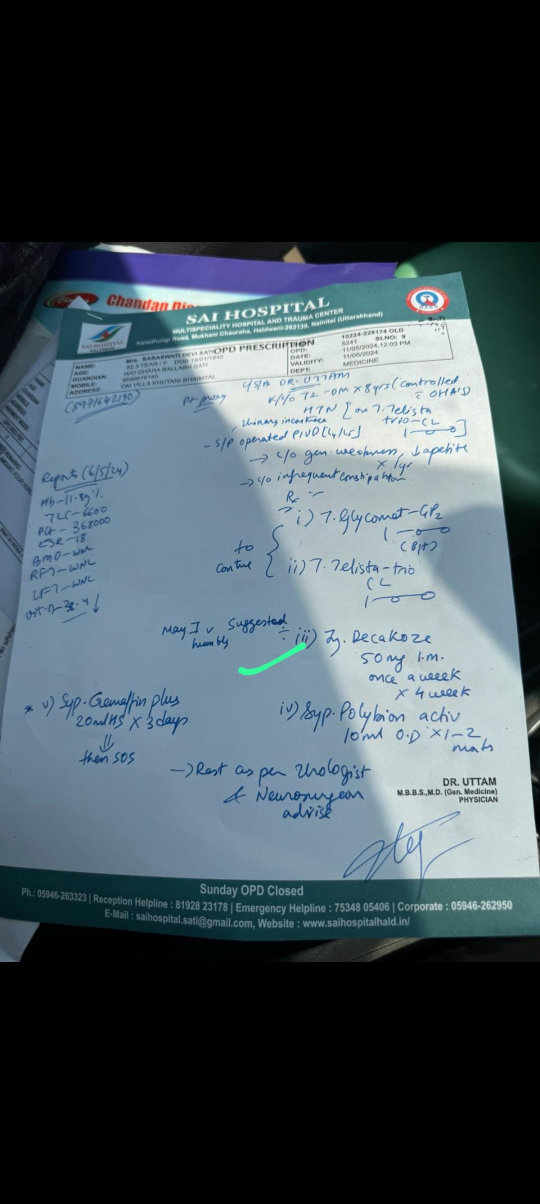 Chandan Dia
SAI HOSPITAL
MULTISPECIALITY HOSPITAL AND TRAUMA CENTER
Kaladhungi Road, Mukhani Chauraha, Haldwani-263139, Nainital (Uttarakhand)
SAI HOSPITAL
OPD PRESCRIPTION
NAME: Mrs. SARASWATI DEVI SATI
AGE:
GUARDIAN: W/O DHANA BALLABH SATI
MOBILE:
ADDRESS: OM VILLA KHUTANI BHAIMTAL
OLD
OPD: 5241 SLNO: 9
DATE: 11/05/2024, 12:03 PM
VALIDITY: 11/05/2024
DEPT: MEDICINE
(8971642190)
Pt proxy
C/S/B DR. UTTAM
K/C/O T2-DM X 8yrs (controlled
c̄ OHA's)
HTN [on T. Telista
trio-CL
Urinary incontinence
- S/P operated PIVD [L4/L5]
→ c/o gen weakness, ↓ apetite
x 1yr
→ c/o infrequent constipation
Reports (6/5/24)
Hb-11.8g%
TLC-6600
Plt - 368000
ESR-18
RFT-WNL
LFT-WNL
Vit-D-38.4 ↓
Rx
to
contine
i) T. Glycomet-GP2
1
ii) T. Telista-trio
CL
1
May I v humbly
Suggested
iii) Inj. Decakoze
50mg I.M.
once a week
x 4 week
iv) Syp. Polybion activ
10ml O.D x 1-2
* v) Syp. Gemaffin plus
20ml HS X 3 days
⇓
then SOS
→ Rest as per Urologist
& Neurosurgeon
advise
DR. UTTAM
M.B.B.S.,M.D. (Gen. Medicine)
PHYSICIAN
Sunday OPD Closed
Ph.: 05946-263323 | Reception Helpline : 81928 23178 | Emergency Helpline : 75348 05406 | Corporate : 05946-262950
E-Mail : saihospital.sati@gmail.com, Website : www.saihospitalhald.in/